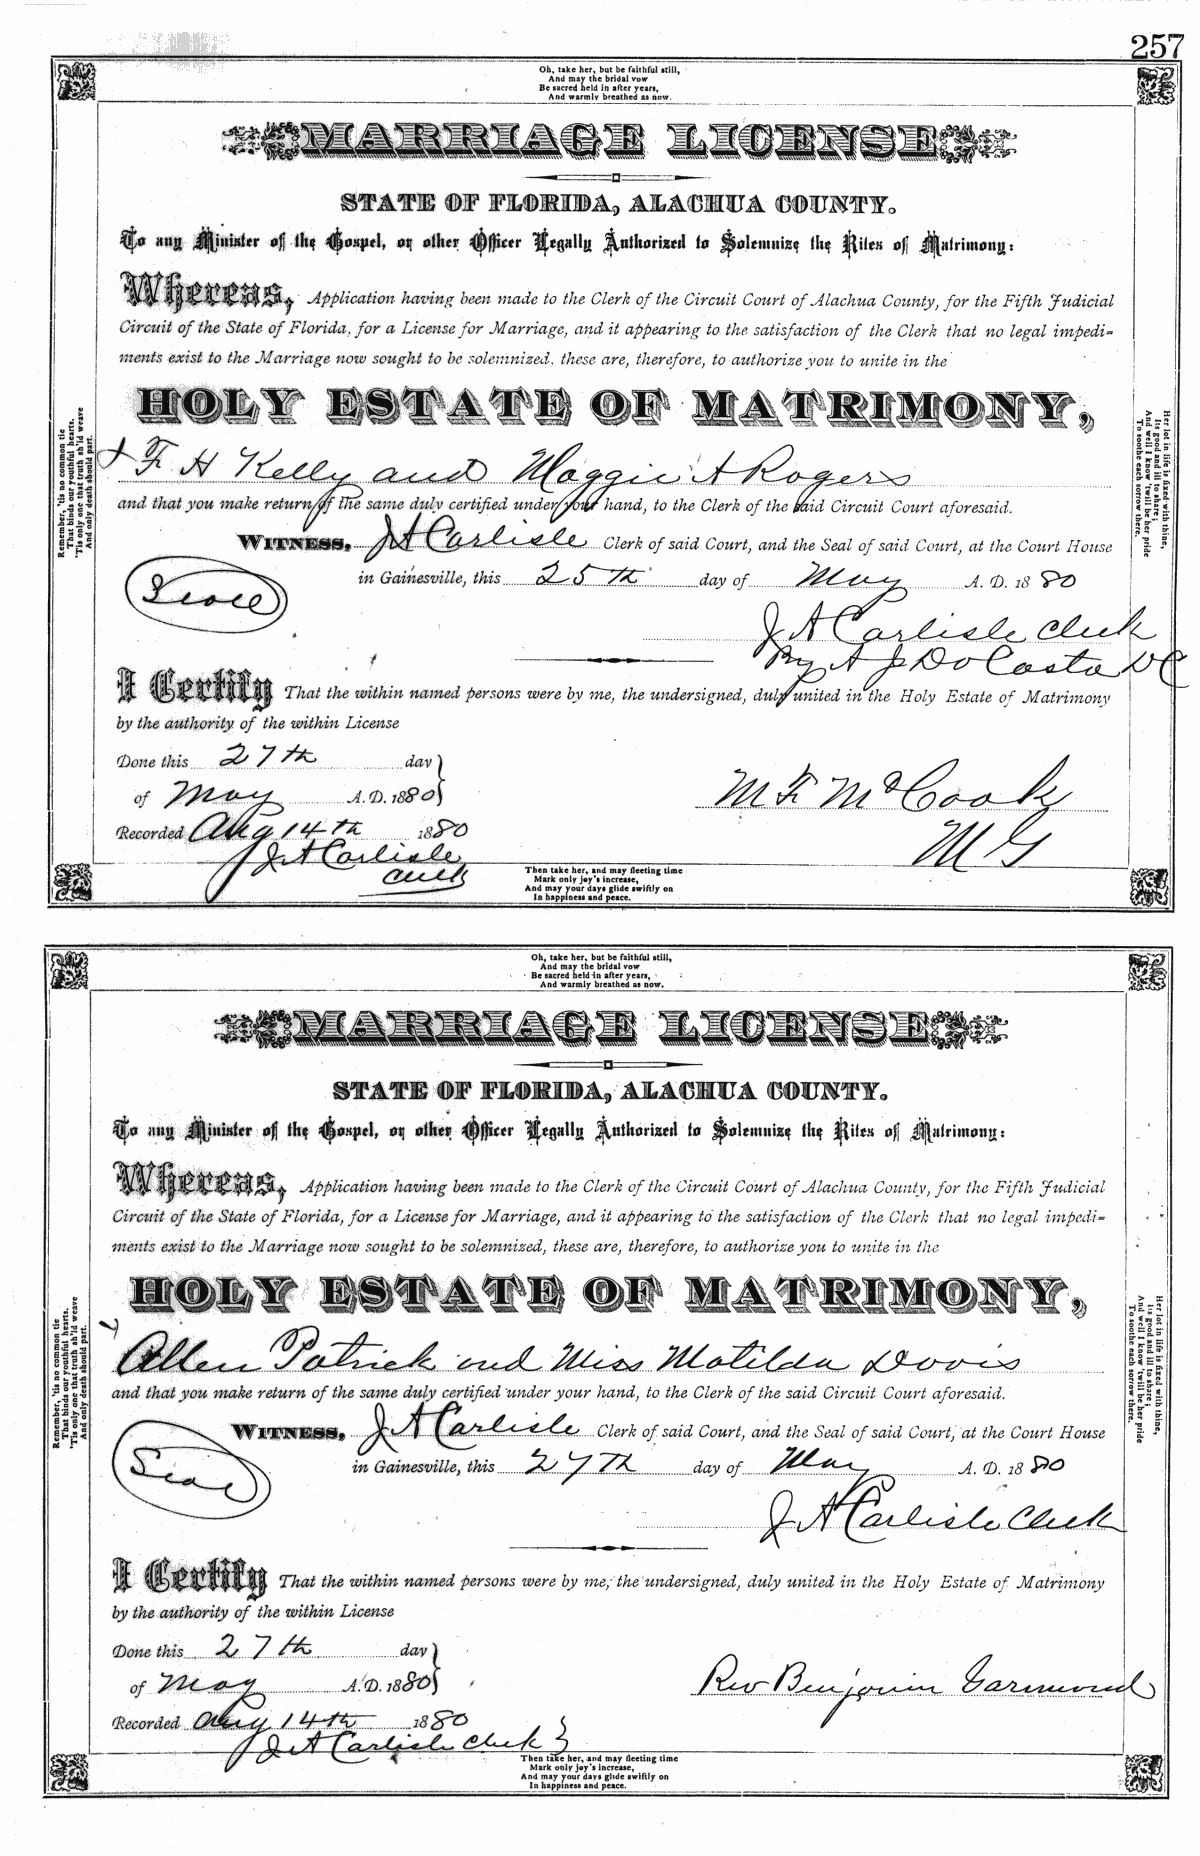 257
Oh, take her, but be faithful still,
And may the bridal vow
Be sacred held in after years,
And warmly breathed as now.
MARRIAGE LICENSE
STATE OF FLORIDA, ALACHUA COUNTY.
To any Minister of the Gospel, or other Officer Legally Authorized to Solemnize the Rites of Matrimony:
Whereas, Application having been made to the Clerk of the Circuit Court of Alachua County, for the Fifth Judicial
Circuit of the State of Florida, for a License for Marriage, and it appearing to the satisfaction of the Clerk that no legal impedi-
ments exist to the Marriage now sought to be solemnized, these are, therefore, to authorize you to unite in the
HOLY ESTATE OF MATRIMONY,
F H Kelly and Maggie A Rogers
and that you make return of the same duly certified under your hand, to the Clerk of the said Circuit Court aforesaid.
WITNESS, J A Carlisle Clerk of said Court, and the Seal of said Court, at the Court House
in Gainesville, this 25th day of May A. D. 1880
Seal
J A Carlisle Clerk
By A J DaCosta DC
I Certify That the within named persons were by me, the undersigned, duly united in the Holy Estate of Matrimony
by the authority of the within License
Done this 27th day
of May A. D. 1880
M F McCook
M G
Recorded Aug 14th 1880
J A Carlisle
Clerk
Remember, 'tis no common tie
That binds our youthful hearts,
'Tis only one that truth sh'ld weave
And only death should part.
Her lot in life is fixed with thine,
Its good and ill to share;
And well I know 'twill be her pride
To soothe each sorrow there.
Then take her, and may fleeting time
Mark only joy's increase,
And may your days glide swiftly on
In happiness and peace.
Oh, take her, but be faithful still,
And may the bridal vow
Be sacred held in after years,
And warmly breathed as now.
MARRIAGE LICENSE
STATE OF FLORIDA, ALACHUA COUNTY.
To any Minister of the Gospel, or other Officer Legally Authorized to Solemnize the Rites of Matrimony:
Whereas, Application having been made to the Clerk of the Circuit Court of Alachua County, for the Fifth Judicial
Circuit of the State of Florida, for a License for Marriage, and it appearing to the satisfaction of the Clerk that no legal impedi-
ments exist to the Marriage now sought to be solemnized, these are, therefore, to authorize you to unite in the
HOLY ESTATE OF MATRIMONY,
Allen Patrick and Miss Matilda Davis
and that you make return of the same duly certified under your hand, to the Clerk of the said Circuit Court aforesaid.
WITNESS, J A Carlisle Clerk of said Court, and the Seal of said Court, at the Court House
in Gainesville, this 27th day of May A. D. 1880
Seal
J A Carlisle Clerk
I Certify That the within named persons were by me, the undersigned, duly united in the Holy Estate of Matrimony
by the authority of the within License
Done this 27th day
of May A. D. 1880
Rev Benjamin Garmond
Recorded Aug 14th 1880
J A Carlisle Clerk
Remember, 'tis no common tie
That binds our youthful hearts,
'Tis only one that truth sh'ld weave
And only death should part.
Her lot in life is fixed with thine,
Its good and ill to share;
And well I know 'twill be her pride
To soothe each sorrow there.
Then take her, and may fleeting time
Mark only joy's increase,
And may your days glide swiftly on
In happiness and peace.